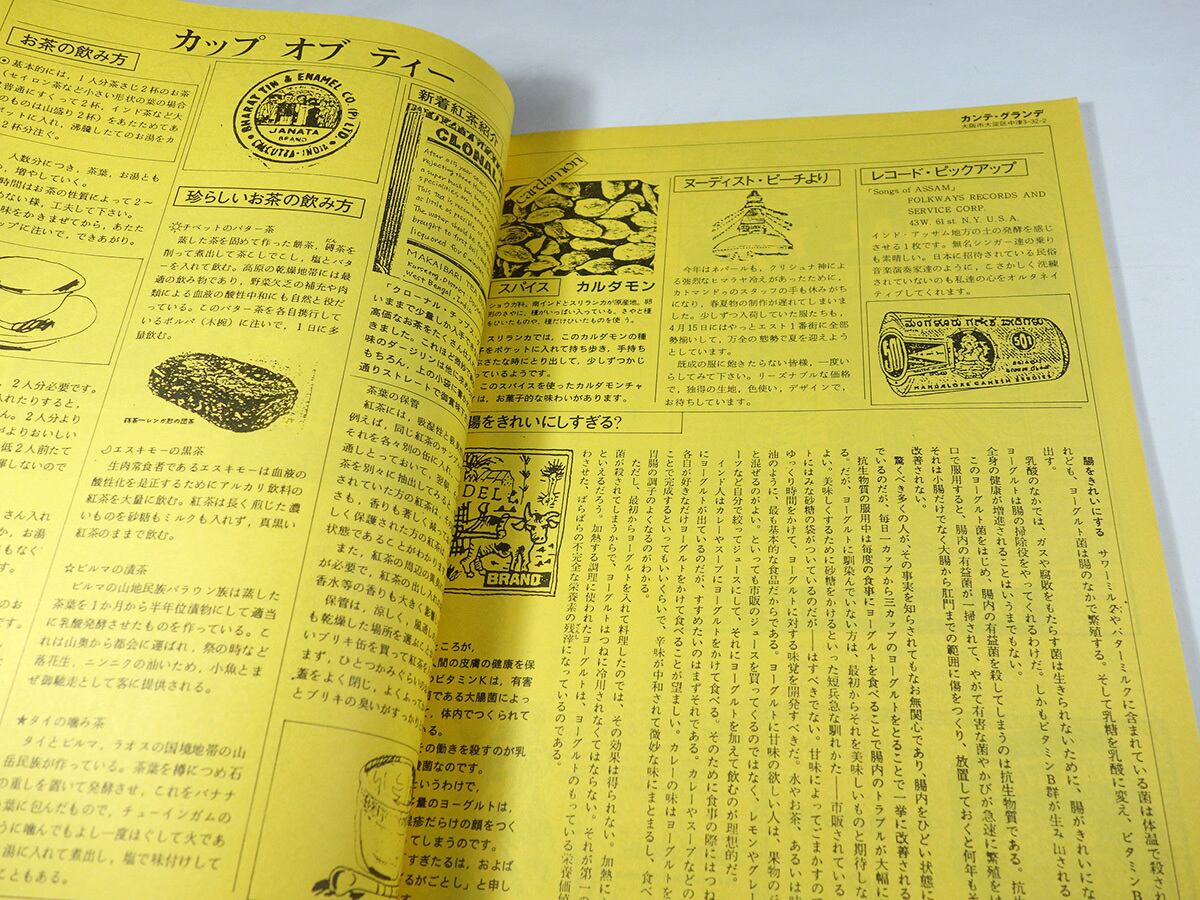 カップ オブ ティー
お茶の飲み方
基本的には、1人分茶さじ2杯のお茶
(セイロン茶など小さい形状の葉の場合
普通にすくって2杯、インド茶など大
のものは山盛り2杯)をあたためてあ
ポットに入れ、沸騰したてのお湯をカ
2杯分注ぐ。
人数分につき、茶葉、お湯とも
増やしていく。
時間はお茶の性質によって2〜
めない様、工夫して下さい。
味をかきまぜてから、あたた
ップに注いで、できあがり。
2人分必要です。
BHARAT TIN & ENAMEL CO (P) LTD
JANATA
BRAND
CALCUTTA・INDIA
珍らしいお茶の飲み方
チベットのバター茶
蒸した茶を固めて作った餅茶、磚茶を
削って煮出して茶こしでこし、塩とバタ
ーを入れて飲む。高原の乾燥地帯には最
適の飲み物であり、野菜欠乏の補充や肉
類による血液の酸性中和にも自然と役だ
っている。このバター茶を各自携行して
いるボルバ(木椀)に注いで、1日に多
量飲む。
エスキモーの黒茶
生肉常食者であるエスキモーは血液の
酸性化を是正するためにアルカリ飲料の
紅茶を大量に飲む。紅茶は長く煎じた濃
いものを砂糖もミルクも入れず、真黒い
紅茶のままで飲む。
☆ビルマの漬茶
ビルマの山地民族パラウン族は蒸した
茶葉を1か月から半年位漬物にして適当
に乳酸発酵させたものを作っている。こ
れは山奥から都会に運ばれ、祭の時など
落花生、ニンニクの油いため、小魚とま
ぜ御馳走として客に提供される。
★タイの噛み茶
タイとビルマ、ラオスの国境地帯の山
岳民族が作っている。茶葉を樽につめ石
の重しを置いて発酵させ、これをバナナ
葉に包んだもので、チューインガムの
うに噛んでもよし一度ほぐして火であ
湯に入れて煮出し、塩で味付けして
こともある。
新着紅茶紹介
CLONAL
MAKAIBARI TEA
「クローナル・チップ
いままで少量しか入手
高価なお茶をたくさん
きました。これほど
味のダージリンは他に
もちろん、上の小袋に
通りストレートで御賞味
茶葉の保管
紅茶には、吸湿性と
例えば、同じ紅茶のサ
それを各々別の缶に入れ
通しとっておいて、翌朝
茶を別々に抽出してみる
されていた方の紅茶は、
さも、香りも著しく
しく保護された方の紅茶は
状態であることがわかります
また、紅茶の周辺の異
が必要で、紅茶の出し入れ
香水等の香りも大きく影
保管は、涼しく、風通し
も乾燥した場所を選ぶこと
いブリキ缶を買って紅茶を
まず、ひとつかみぐらい
蓋をよく閉じ、よくふって
とブリキの臭いがすっかり
カンテ・グランデ
大阪市大淀区中津3-32-2
cardamon
スパイス カルダモン
ショウガ科。南インドとスリランカが原産地。卵
形のさやに、種がいっぱい入っている。さやと種
をひいたものや、種だけひいたものを使う。
スリランカでは、このカルダモンの種
子をポケットに入れて持ち歩き、手持ち
ぶさたな時にとり出して、少しずつかじ
っているようです。
このスパイスを使ったカルダモンチャ
は、お菓子的な味わいがあります。
ヌーディスト・ビーチより
今年はネパールも、クリシュナ神によ
る強烈なヒマラヤ冷えがあったために、
カトマンドゥのスタッフの手も休みがち
になり、春夏物の制作が遅れてしまいま
した。少しずつ入荷していた服たちも、
4月15日にはやっとエスト1番街に全部
勢揃いして、万全の態勢で夏を迎えよう
としています。
既成の服に飽きたらない皆様、一度い
らしてみて下さい。リーズナブルな価格
で、独得の生地、色使い、デザインで、
お待ちしています。
レコード・ピックアップ
「Songs of ASSAM」
FOLKWAYS RECORDS AND
SERVICE CORP.
43W. 61st. N.Y. U.S.A.
インド・アッサム地方の土の発酵を感じ
させる1枚です。無名シンガー達の乗り
も素晴しい。日本に招待されている民俗
音楽演奏家達のように、こさかしく洗練
されていないのも私達の心をオルタネイ
ティブしてくれます。
501
MANGALORE GANESH BEEDIES
腸をきれいにしすぎる?
DELTA
BRAND
腸をきれいにする サワーミルクやバターミルクに含まれている菌は体温で殺され
れども、ヨーグルト菌は腸のなかで繁殖する。そして乳糖を乳酸に変え、ビタミンB
出す。
乳酸のなかでは、ガスや腐敗をもたらす菌は生きられないために、腸がきれいにな
ヨーグルトは腸の掃除役をやってくれるわけだ。しかもビタミンB群が生み出される
全身の健康が増進されることはいうまでもない。
このヨーグルト菌をはじめ、腸内の有益菌を殺してしまうのは抗生物質である。抗生
口で服用すると、腸内の有益菌が一掃されて、やがて有害な菌やかびが急速に繁殖をは
それは小腸だけでなく大腸から肛門までの範囲に傷をつくり、放置しておくと何年もそ
改善されない。
驚くべき多くの人が、その事実を知らされてもなお無関心であり、腸内をひどい状態に
ているのだが、毎日一カップから三カップのヨーグルトをとることで一挙に改善される
抗生物質の服用中は毎度の食事にヨーグルトを食べることで腸内のトラブルが大幅に
る。だが、ヨーグルトに馴染んでいない方は、最初からそれを美味しいものと期待しな
よい。美味しくするために砂糖をかけるといった短兵急な馴れかた——市販されている
トにはみな砂糖の袋がついているのだが——はすべきでない。甘味によってごまかすので
ゆっくり時間をかけて、ヨーグルトに対する味覚を開発すべきだ。水やお茶、あるいは味
油のように、最も基本的な食品だからである。ヨーグルトに甘味の欲しい人は、果物のジ
と混ぜるのがよい。といっても市販のジュースを買ってくるのではなく、レモンやグレー
ーツなど自分で絞ってジュースにして、それにヨーグルトを加えて飲むのが理想的だ。
インド人はカレーやスープにヨーグルトをかけて食べる。そのために食事の際にはつね
にヨーグルトが出ているのだが、すすめたいのはまずそれである。カレーやスープなどの
各自が好きなだけヨーグルトをかけて食べることが望ましい。カレーの味はヨーグルトを
て完成するといってもいいくらいで、辛味が中和されて微妙な味にまとまるし、食べ
胃腸の調子のよくなるのがわかる。
ただし、最初からヨーグルトを入れて料理したのでは、その効果は得られない。加熱に
菌が殺されてしまうからで、ヨーグルトはつねに冷用されなくてはならない。それが第一の
といえるだろう。加熱する調理に使われたヨーグルトは、ヨーグルトのもっている栄養価値
わさせた、ばらばらの不完全な栄養素の残滓になっているのである。
ところが、
人間の皮膚の健康を保
ビタミンKは、有害
である大腸菌によっ
体内でつくられて
いる。
の働きを殺すのが乳
酸菌なのです。
というわけで、
多量のヨーグルトは、
疹だらけの顔をつく
てしまうのです。
すぎたるは、およば
るがごとし」と申し